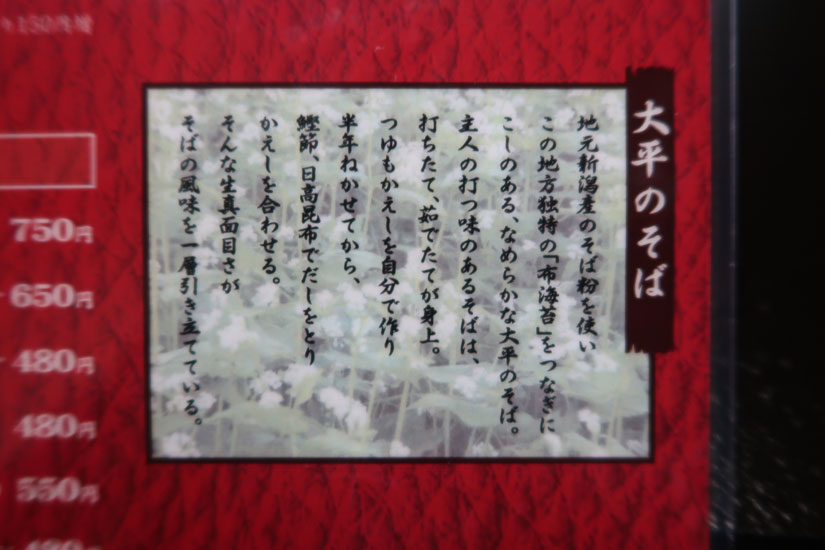 大平のそば
地元新潟産のそば粉を使い
この地方独特の「布海苔」をつなぎに
こしのある、なめらかな大平のそば。
主人の打つ味のあるそばは、
打ちたて、茹でたてが身上。
つゆもかえしを自分で作り
半年ねかせてから、
鰹節、日高昆布でだしをとり
かえしを合わせる。
そんな生真面目さが
そばの風味を一層引き立てている。
750円
650円
480円
480円
550円